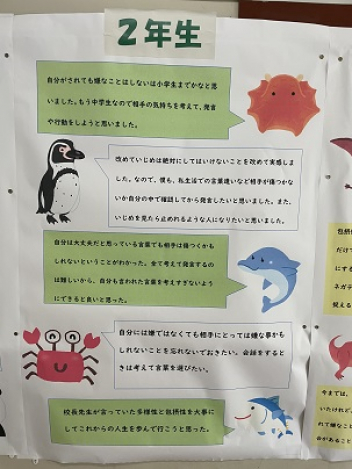 2年生
自分がされても嫌なことはしないは小学生までかなと思
いました。もう中学生なので相手の気持ちを考えて、発言
や行動をしようと思いました。
改めていじめは絶対にしてはいけないことを改めて実感しま
した。なので、僕も、私生活での言葉遣いなど相手が傷つかな
いか自分の中で確認してから発言したいと思いました。また、
いじめを見たら止めれるような人になりたいと思いました。
自分は大丈夫だと思っている言葉でも相手は傷つくかも
しれないということがわかった。全て考えて発言するの
は難しいから、自分も言われた言葉を考えすぎないよう
にできると良いと思った。
自分には嫌ではなくても相手にとっては嫌な事かも
しれないことを忘れないでおきたい。会話をすると
きは考えて言葉を選びたい。
校長先生が言っていた多様性と包摂性を大事に
してこれからの人生を歩んで行こうと思った。
包摂
だけ
にす
ネガテ
捉える
今までは、
いたけれど、
れて嫌なこと